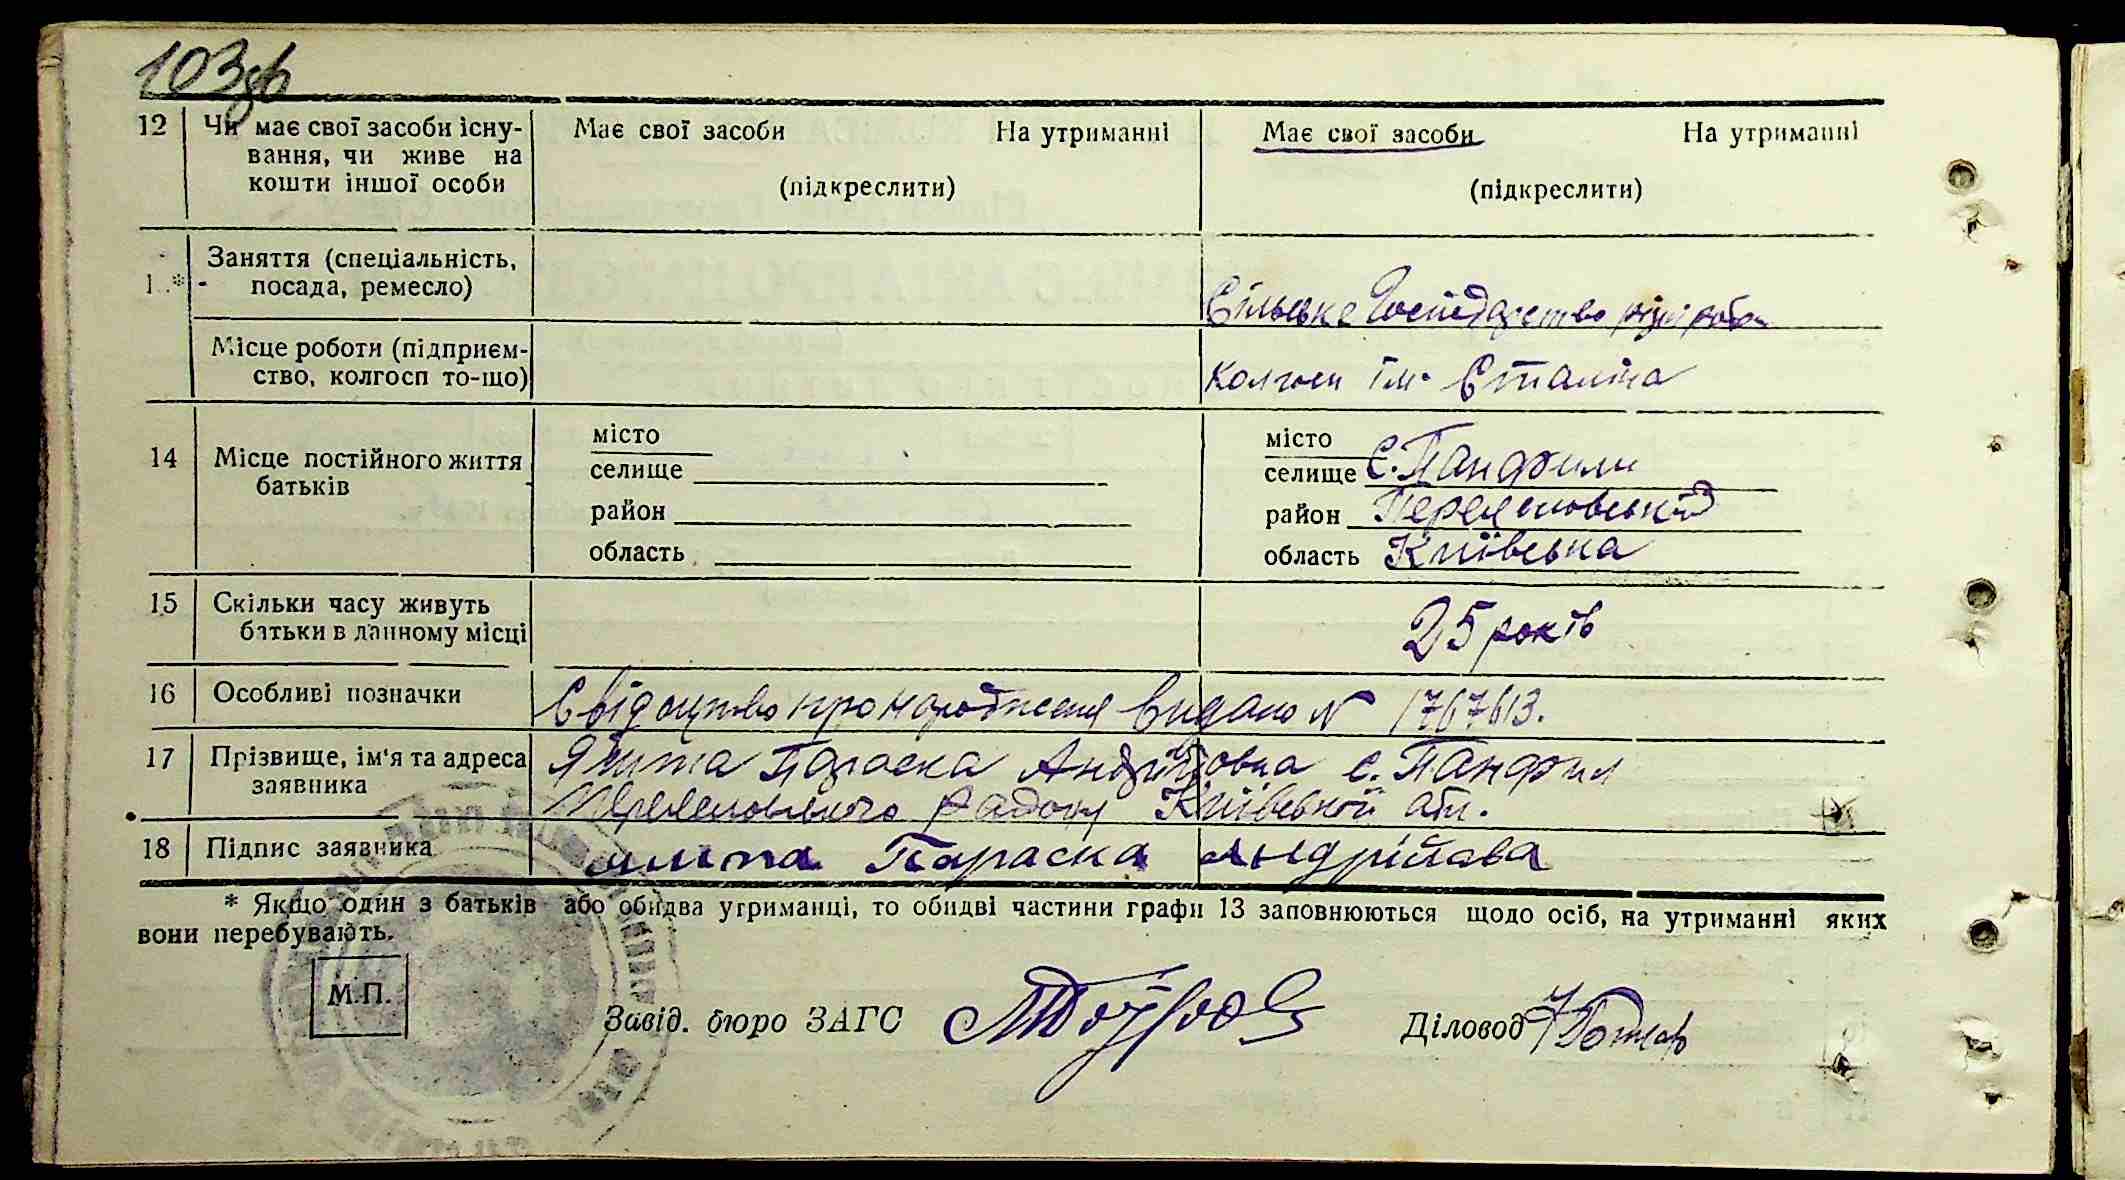 103зв
12 Чи має свої засоби існу- Має свої засоби На утриманні Має свої засоби На утриманні
вання, чи живе на
кошти іншої особи (підкреслити) (підкреслити)
Заняття (спеціальність,
1 .* посада, ремесло) Сільське Господарство різні роби
Місце роботи (підприєм-
ство, колгосп то-що) Колгосп ім. Сталіна
місто місто
14 Місце постійного життя селище селище с. Панфили
батьків
район район Переяславський
область область Київська
15 Скільки часу живуть
батьки в данному місці 25 років
16 Особливі позначки Свідоцтво про народження видано № 1767613.
17 Прізвище, ім'я та адреса Параска Андріївна с. Панфил
заявника Переяславського Київської обл.
18 Підпис заявника Параска Андрійова
* Якщо один з батьків або обидва утриманці, то обидві частини графи 13 заповнюються щодо осіб, на утриманні яких
вони перебувають.
М.П.
Завід. бюро ЗАГС Діловод